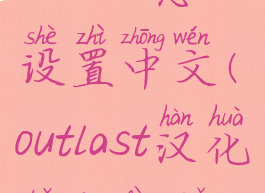 shè zhì zhōng wén
设置中文(
hàn huà
outlast汉化